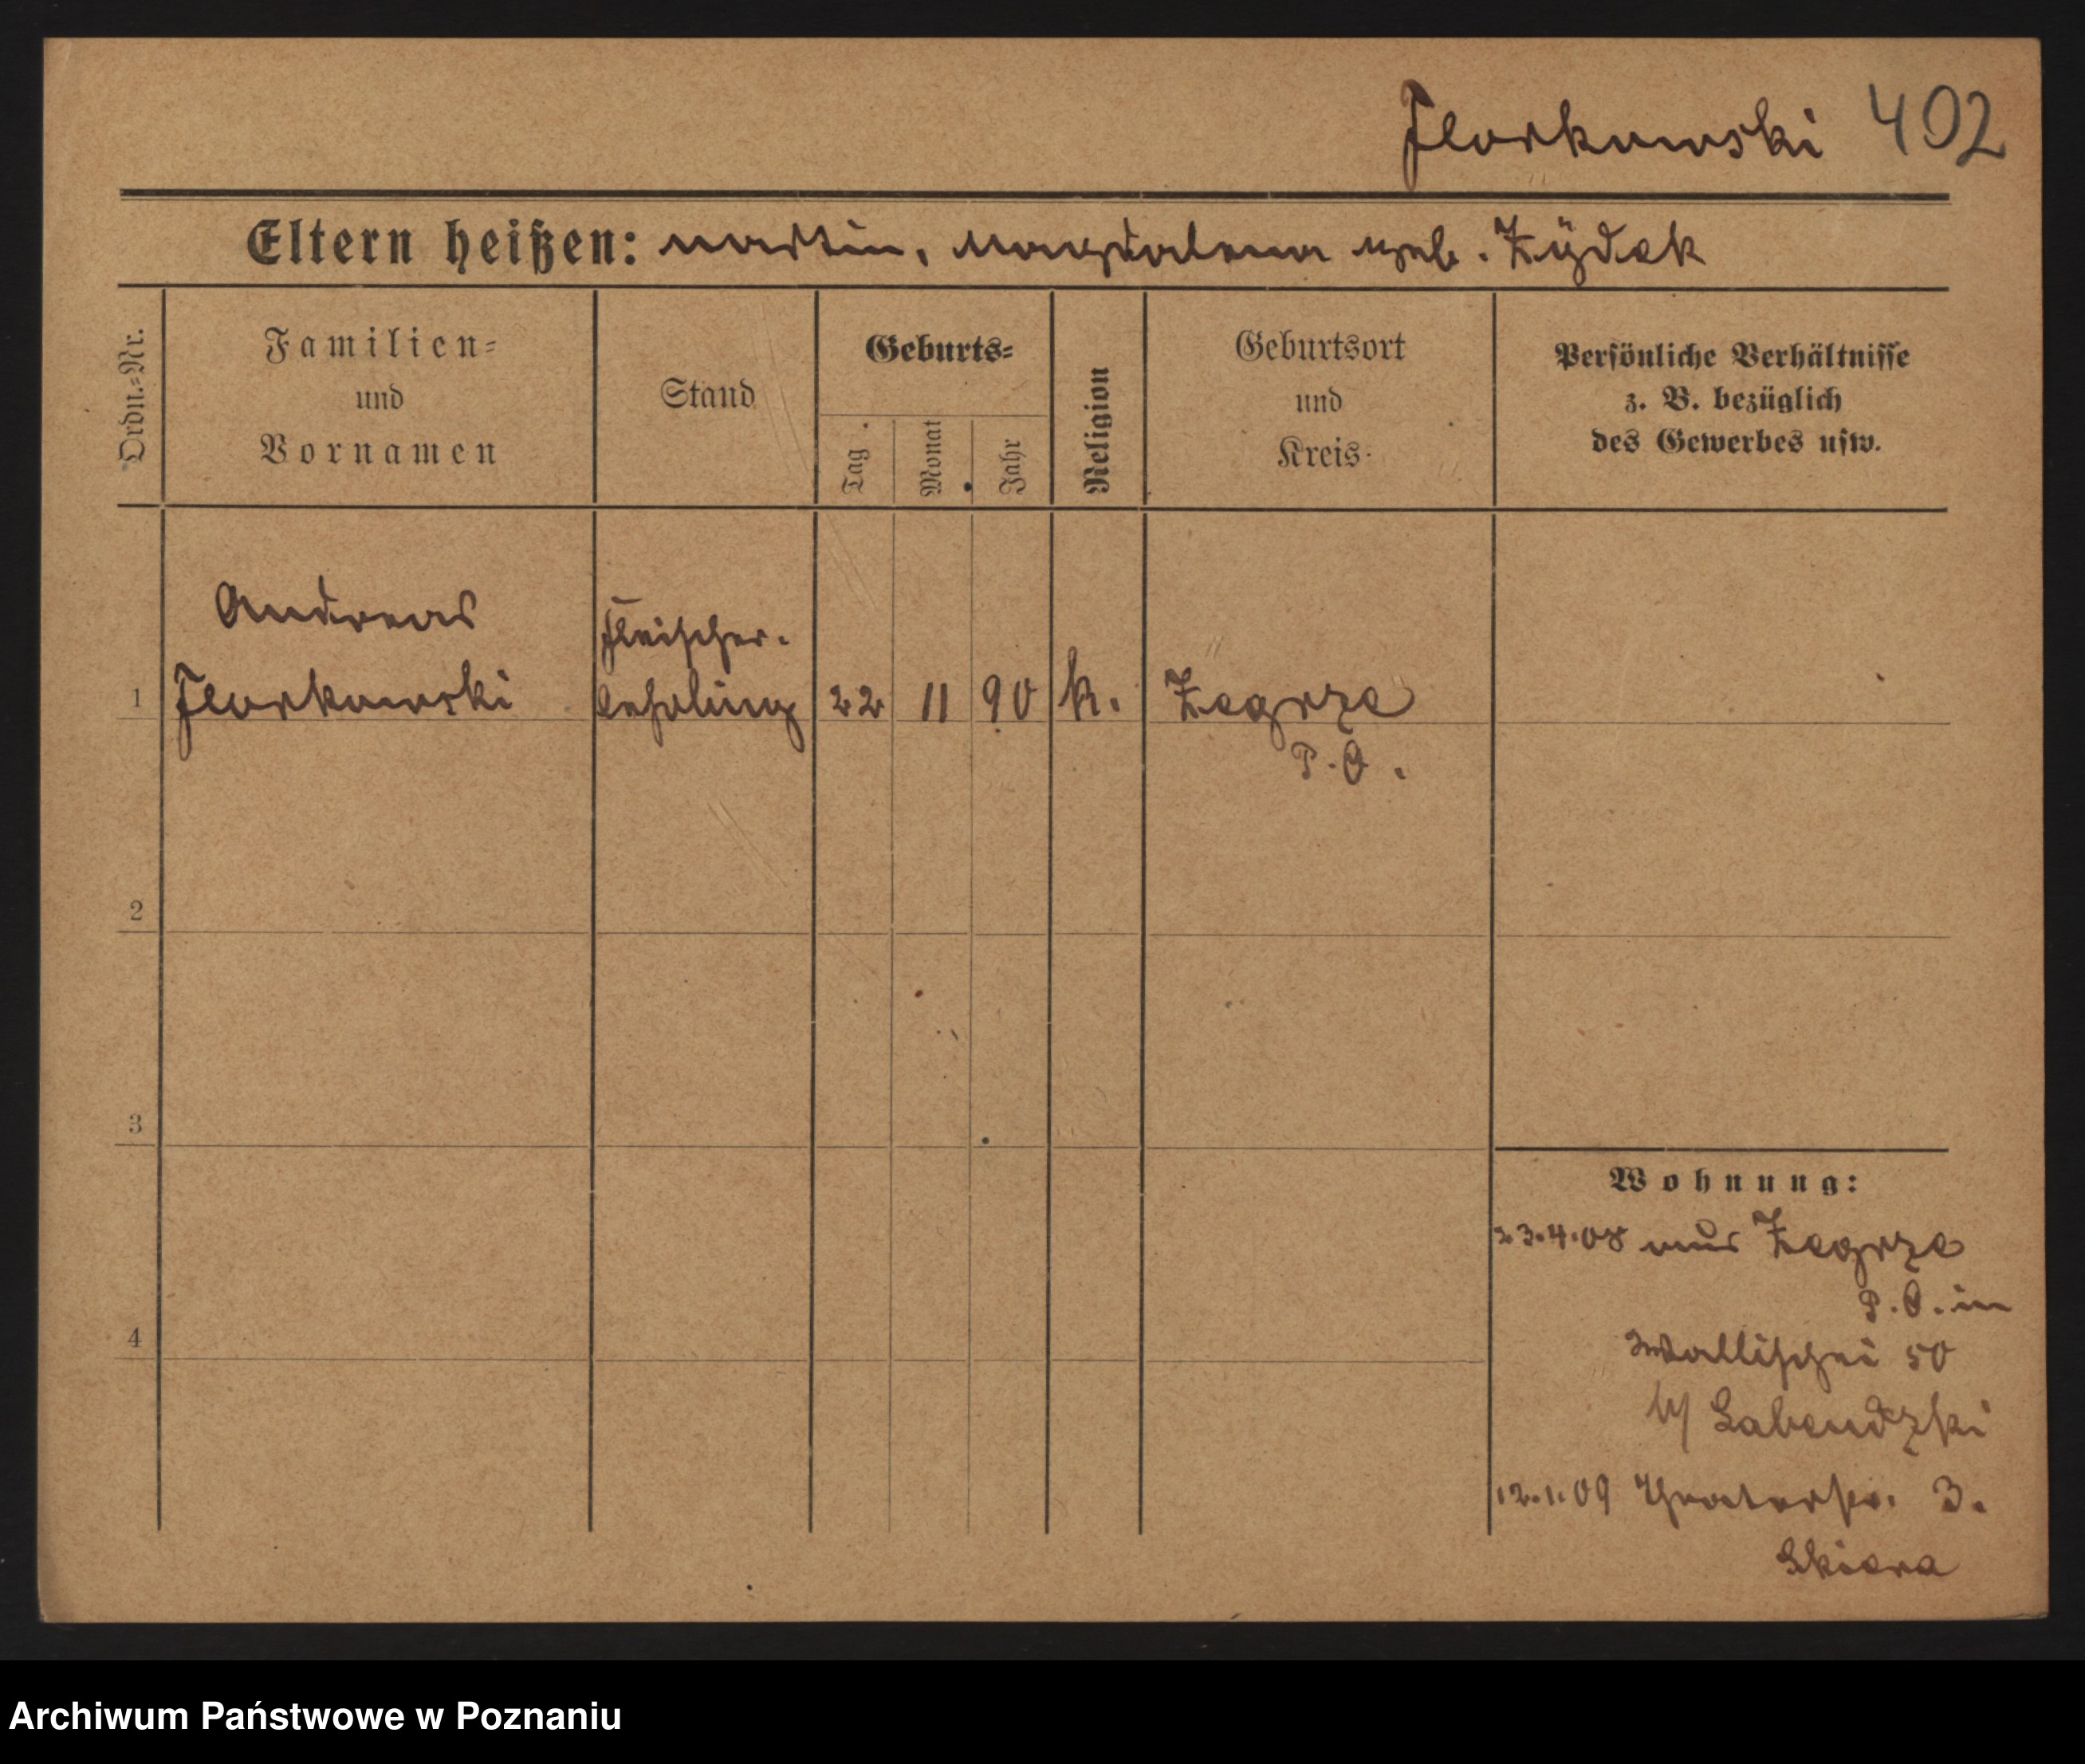 Florkowski 402
Eltern heißen: Martin, Magdalena geb. Zÿdek
Ordn.-Nr.
Familien-
und
Vornamen
Stand
Geburts-
Tag
Monat
Jahr
Religion
Geburtsort
und
Kreis
Persönliche Verhältnisse
z. B. bezüglich
des Gewerbes usw.
Andreas
Fleischer-
1 Florkowski lehrling 22 11 90 k. Zegrze
P. O.
2
3
4
Wohnung:
23.4.08 aus Zegrze
P. O. in
Wallischei 50
b/ Labendzki
12.1.09 3.
Skiera
Archiwum Państwowe w Poznaniu